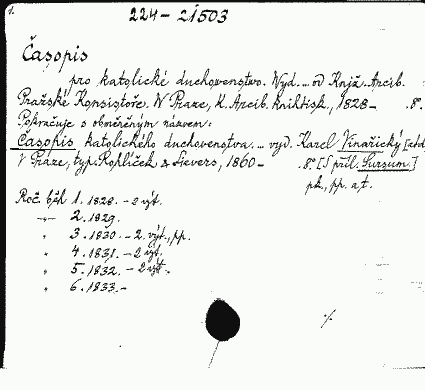 1.
224-21503
Časopis
pro katolické duchovenstvo. Vyd. … od Knjž. Arcib.
Pražské Konsistoře. W Praze, K. Arcib. knihtisk., 1828- .8°.
Pokračuje s obměněným názvem:
Časopis katolického duchovenstva. … vyd. Karel Vinařický
V Praze, typ. Rohlíček & Sievers, 1860- .8°. [S příl. Sursum.]
pk., pp. a.t.
Roč. 1. 1828. - 2 výt.
-"- 2. 1829.
" 3. 1830. - 2. výt., pp.
" 4. 1831. - 2 výt.
" 5. 1832. - 2 výt.
" 6. 1833. -
./.